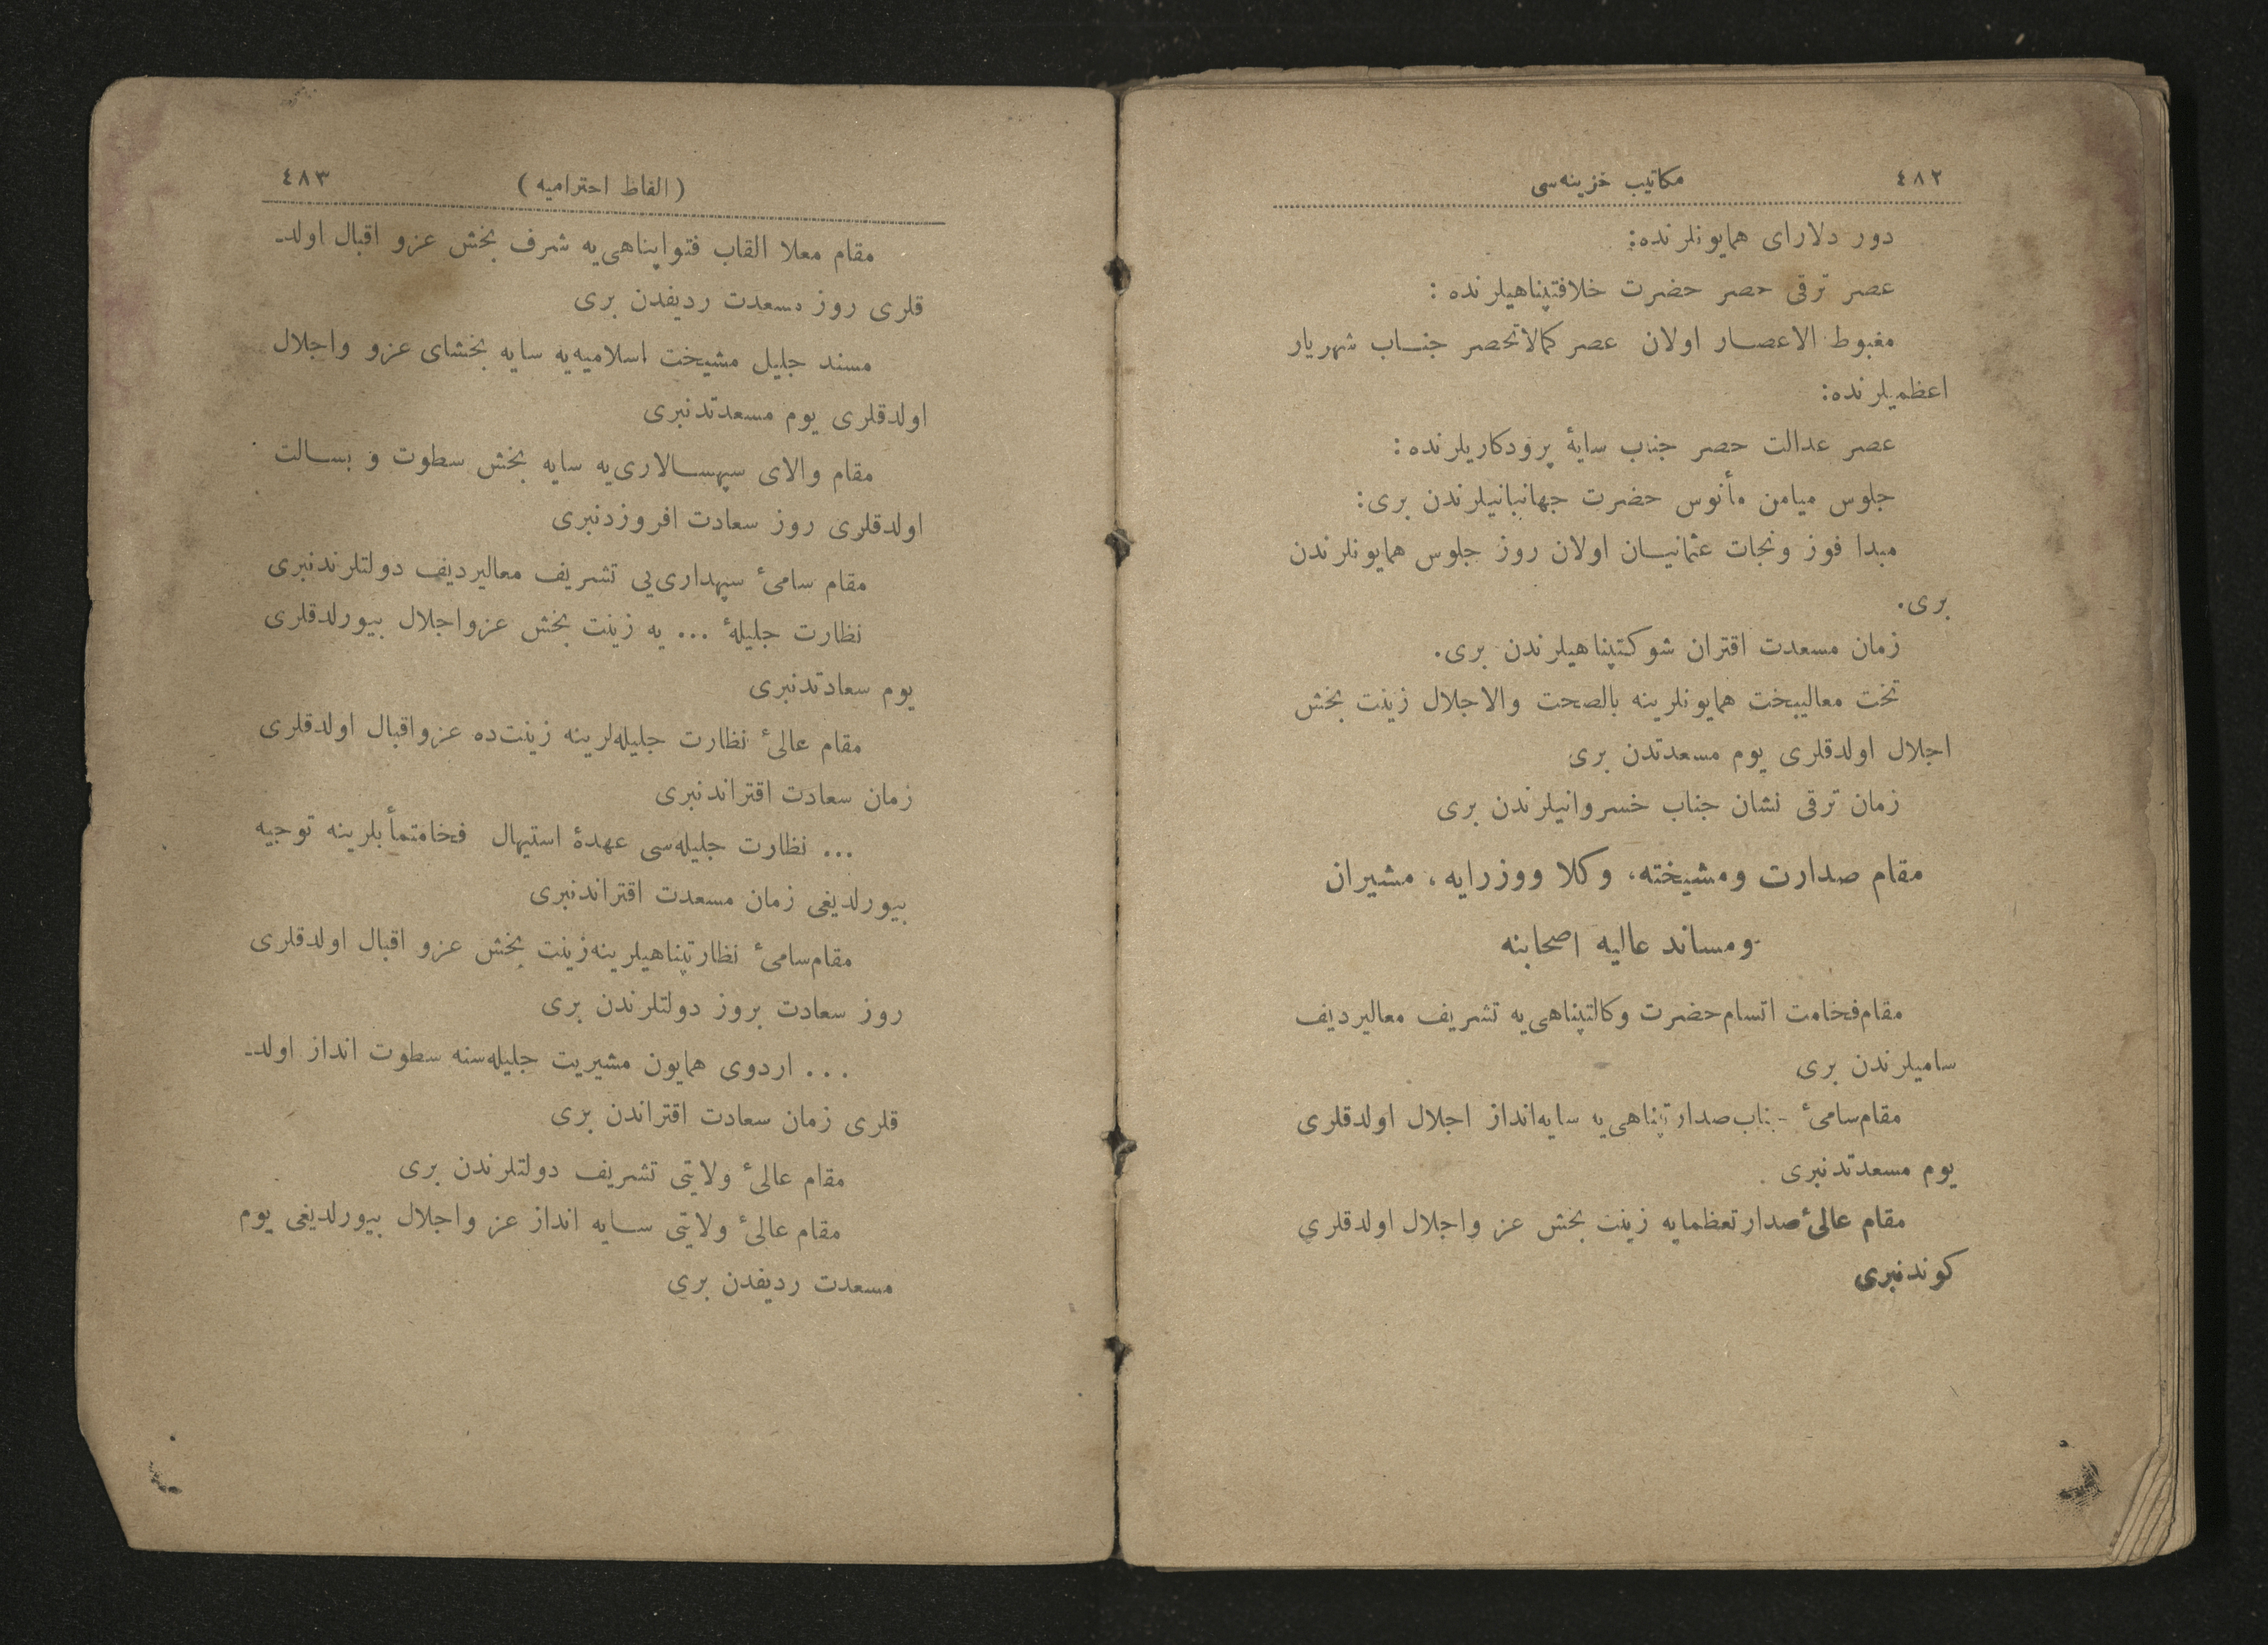 ٤٨٢
مكاتيب خزينه‌سی
دور دلارای همايونلرنده:
عصر ترقی حصر حضرت خلافتپناهيلرنده :
مغبوط الاعصار اولان عصر كمالاتحصر جناب شهريار
اعظميلرنده:
عصر عدالت حصر جناب سايۀ پرودكاريلرنده :
جلوس ميامن مأنوس حضرت جهانبانيلرندن بری:
مبدا فوز ونجات عثمانيان اولان روز جلوس همايونلرندن
بری.
زمان مسعدت اقتران شوكتپناهيلرندن بری.
تخت معاليبخت همايونلرينه بالصحت والاجلال زينت بخش
اجلال اولدقلری يوم مسعدتدن بری
زمان ترقی نشان جناب خسروانيلرندن بری
مقام صدارت ومشيخته، وكلا ووزرايه، مشيران
ومساند عاليه اصحابنه
مقام فخامت اتسام حضرت وكالتپناهی‌يه تشريف معاليرديف
ساميلرندن بری
مقام سامیٔ جناب صدارتپناهی‌يه سايه‌انداز اجلال اولدقلری
يوم مسعدتدنبری
مقام عالیٔ صدارتعظمايه زينت بخش عز واجلال اولدقلری
كوندنبری
(الفاظ احتراميه)
٤٨٣
مقام معلا القاب فتواپناهی‌يه شرف بخش عزو اقبال اولد-
قلری روز مسعدت رديفدن بری
مسند جليل مشيخت اسلاميه‌يه سايه بخشای عزو واجلال
اولدقلری يوم مسعدتدنبری
مقام والای سپهسالاری‌يه سايه بخش سطوت و بسالت
اولدقلری روز سعادت افروزدنبری
مقام سامیٔ سپهداری‌يی تشريف معاليرديف دولتلرندنبری
نظارت جليلۀ ... يه زينت بخش عزواجلال بيورلدقلری
يوم سعادتدنبری
مقام عالیٔ نظارت جليله‌لرينه زينت‌ده عزواقبال اولدقلری
زمان سعادت اقتراندنبری
... نظارت جليله‌سی عهدۀ استيهال فخامتمأبلرينه توجيه
بيورلديغی زمان مسعدت اقتراندنبری
مقام سامیٔ نظارتپناهيلرينه زينت بخش عزو اقبال اولدقلری
روز سعادت بروز دولتلرندن بری
... اردوی همايون مشيريت جليله‌سنه سطوت انداز اولد-
قلری زمان سعادت اقتراندن بری
مقام عالیٔ ولايتی تشريف دولتلرندن بری
مقام عالیٔ ولايتی سايه انداز عز واجلال بيورلديغی يوم
مسعدت رديفدن بری